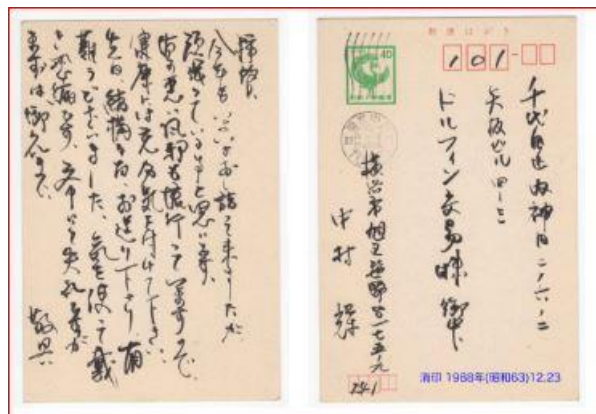 拝啓、
今年もいよいよおし詰って来ましたが、
頑張っている事と思います。
の悪い風邪も
健康には充分気を付けて下さい
先日、結構な品、お送り下さり、有
難うございました。気を使って戴
き恐縮です。失礼ですが
まずは御礼まで。
敬具
郵便はがき
40
101-
千代田区内神田二ノ六ノ二
ビル
ドルフィン交易 御中
横浜市旭区笹野台一七五ノ九
中村
241
消印 1988年(昭和63)12.23